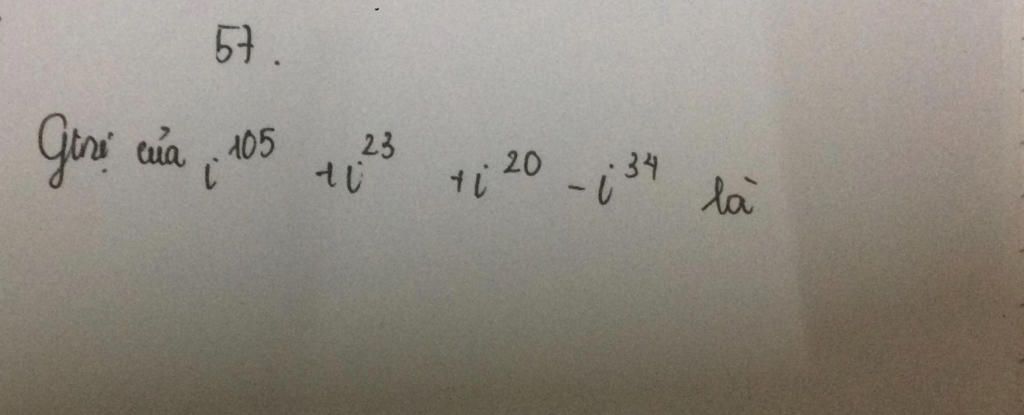 57.
Gtrị của i^105 + i^23 + i^20 - i^34 là